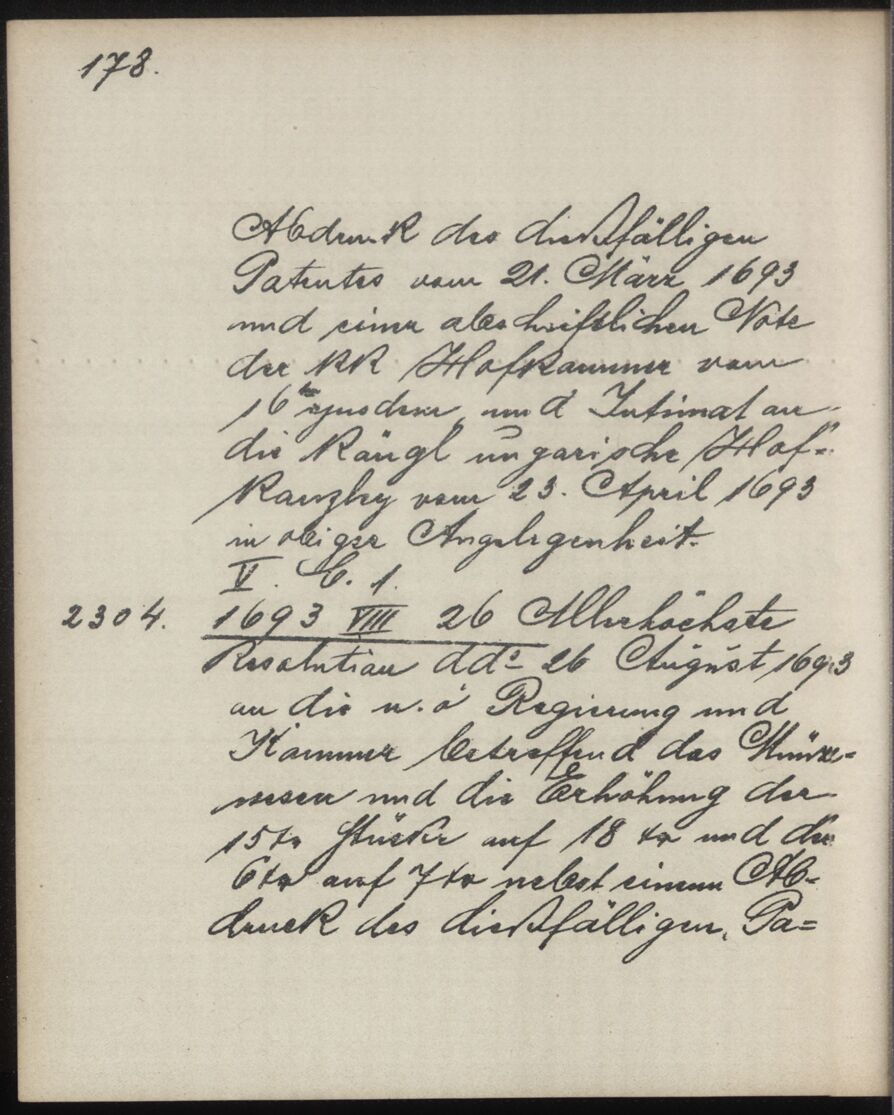 178.
Abdruck des dießfälligen
Patentes vom 21. März 1693
und einer abschriftlichen Note
der KK Hofkammer vom
16ten ejusdem, und Intimat an
die Köngl ungarische Hof-
Kanzley vom 23. April 1693
in obiger Angelegenheit.
V. C. 1.
2304. 1693 VIII 26 Allerhöchste
Resolution ddo 26 August 1693
an die n. ö Regierung und
Kammer betreffend das Münz-
wesen und die Erhöhung der
15 xr Stücke auf 18 xr und der
6 xr auf 7 xr nebst einem Ab-
druck des dießfälligen Pa=